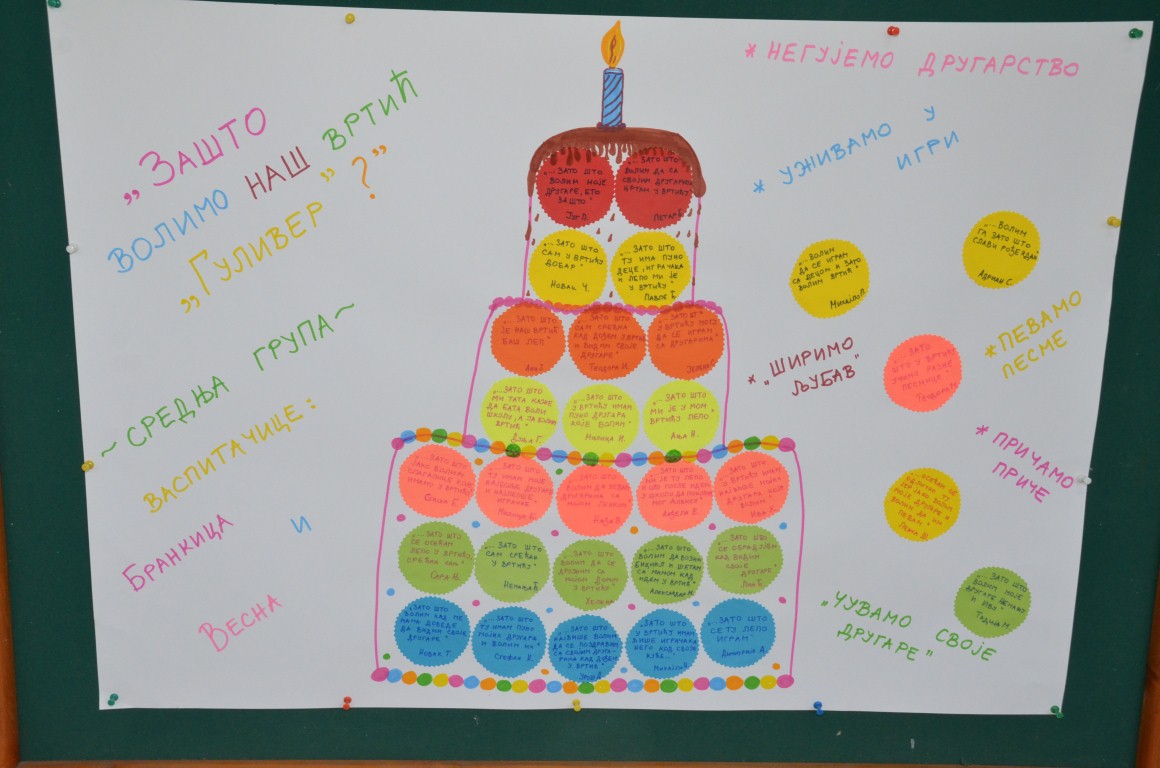 „ЗАШТО
ВОЛИМО НАШ ВРТИЋ
„ГУЛИВЕР" ?"
~ СРЕДЊА ГРУПА ~
ВАСПИТАЧИЦЕ:
БРАНКИЦА И
ВЕСНА
„...ЗАТО ШТО
ВОЛИМ МОЈЕ
ДРУГАРЕ, ЕТО
ЗАШТО"
„...ЗАТО ШТО
ВОЛИМ ДА СА
СВОЈИМ ДРУГАРИМА
ЦРТАМ У ВРТИЋУ"
ПЕТАР
„...ЗАТО ШТО
САМ У ВРТИЋУ
ДОБАР"
НОВАК Ч.
„...ЗАТО ШТО
ТУ ИМА ПУНО
ДЕЦЕ, ИГРАЧАКА
И ЛЕПО МИ ЈЕ
У ВРТИЋУ"
ПАВЛЕ
„...ЗАТО ШТО
ЈЕ НАШ ВРТИЋ
БАШ ЛЕП"
„...ЗАТО ШТО
САМ СРЕЋНА
КАД ДОЂЕМ У ВРТИЋ
И ВИДИМ СВОЈЕ
ДРУГАРЕ"
ТЕОДОРА И.
„...ЗАТО ШТО
У ВРТИЋУ МОГУ
ДА СЕ ИГРАМ
СА ДРУГАРИМА"
„...ЗАТО ШТО
МИ ТАТА КАЖЕ
ДА БАТА ВОЛИ
ШКОЛУ, А ЈА ВОЛИМ
ВРТИЋ"
„...ЗАТО ШТО
У ВРТИЋУ ИМАМ
ПУНО ДРУГАРА
КОЈЕ ВОЛИМ"
МИЛИЦА
„...ЗАТО ШТО
МИ ЈЕ У МОМ
ВРТИЋУ ЛЕПО"
АЊА
„...ЗАТО ШТО
ИМАМО У ВРТИЋУ"
„...ЗАТО ШТО
ТУ ИМАМ МОЈЕ
НАЈБОЉЕ ДРУГАРЕ
И НАЈЛЕПШЕ
ИГРАЧКЕ"
„...ЗАТО ШТО
„...ЗАТО ШТО
МИ ЈЕ ТУ ЛЕПО
„...ЗАТО ШТО
У ВРТИЋУ ИМАМ
ИВА
„...ЗАТО ШТО
СЕ ОСЕЋАМ
ЛЕПО У ВРТИЋУ
САРА
„...ЗАТО ШТО
САМ СРЕЋАН
У ВРТИЋУ"
НЕМАЊА
„...ЗАТО ШТО
ВОЛИМ ДА СЕ
ДРУЖИМ СА
У ВРТИЋУ"
„...ЗАТО ШТО
ВОЛИМ ДА ВОЗИМ
БИЦИКЛ И ШЕТАМ
СА МАМОМ КАД
ИДЕМ У ВРТИЋ"
АЛЕКСАНДАР
„...ЗАТО ШТО
СЕ ОБРАДУЈЕМ
КАД ВИДИМ
СВОЈЕ
ДРУГАРЕ"
„...ЗАТО ШТО
ВОЛИМ КАД МЕ
МАМА ДОВЕДЕ
ДА ВИДИМ СВОЈЕ
ДРУГАРЕ"
НОВАК Т.
„...ЗАТО ШТО
ТУ ИМАМ ПУНО
МОЈИХ ДРУГАРА
И ВОЛИМ ИХ"
СТЕФАН
„...ЗАТО ШТО
НАЈВИШЕ ВОЛИМ
ДА СЕ ПОЗДРАВИМ
СА СВОЈИМ ДРУГА-
РИМА КАД ДОЂЕМ
У ВРТИЋ"
„...ЗАТО ШТО
У ВРТИЋУ ИМАМ
ВИШЕ ИГРАЧАКА
НЕГО КОД СВОЈЕ
КУЋЕ..."
МИХАЈЛО
„...ЗАТО ШТО
СЕ ТУ ЛЕПО
ИГРАМ"
ДИМИТРИЈЕ А.
* НЕГУЈЕМО ДРУГАРСТВО
* УЖИВАМО У
ИГРИ
„...ВОЛИМ
ДА СЕ ИГРАМ
СА ДЕЦОМ И ЗАТО
ВОЛИМ ВРТИЋ"
МИХАЈЛО П.
„...ВОЛИМ
ГА ЗАТО ШТО
СЛАВИ РОЂЕНДАН"
АДРИАН С.
* „ШИРИМО
ЉУБАВ"
„...ЗАТО
ШТО У ВРТИЋУ
УЧИМО РАЗНЕ
ПЕСМИЦЕ"
ТЕОДОРА
* ПЕВАМО
ПЕСМЕ
* ПРИЧАМО
ПРИЧЕ
„...ЗАТО ШТО
ВОЛИМ МОЈЕ
ДРУГАРЕ НЕМАЊУ
И ИВУ"
ТАДИЈА М.
„ЧУВАМО СВОЈЕ
ДРУГАРЕ"